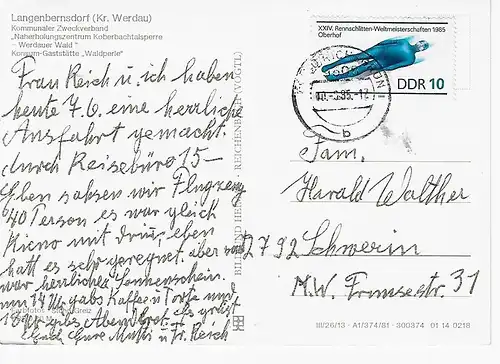 Langenbernsdorf (Kr. Werdau)
Kommunaler Zweckverband
„Naherholungszentrum Koberbachtalsperre
– Werdauer Wald "
Konsum-Gaststätte "Waldperle"
Frau Reich u. ich haben
heute 7.6. eine herrliche
Ausfahrt gemacht.
durch Reisebüro 15–
Eben sahsen wir Flugzeug
40 Person es war gleich
Kieno mit drin, eben
hatt es sehr geregnet. aber
war herrlicher Sonnenschein.
um 14 Uhr gabs Kaffee u Torte und
18 Uhr gabs Abendbrot. Es grüßt
Euch Eure Mutti u. Fr. Reich
BILD UND HEIMAT REICHENBACH (VOGTL)
XXIV. Rennschlitten-Weltmeisterschaften 1985
Oberhof
DDR 10
b
Fam.
Harald Walther
2792 Schwerin
31
III/26/13 · A1/374/81 · 300374 01 14 0218